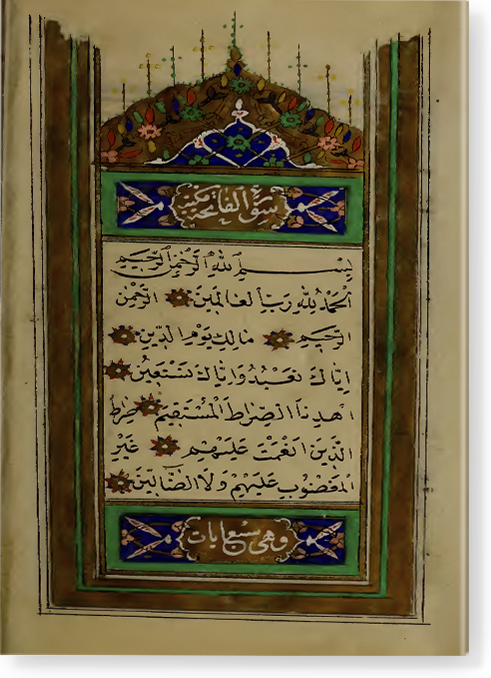 سورة الفاتحة مكية
بسم الله الرحمن الرحيم
الحمد لله رب العالمين الرحمن
الرحيم مالك يوم الدين
اياك نعبد واياك نستعين
اهدنا الصراط المستقيم صراط
الذين انعمت عليهم غير
المغضوب عليهم ولا الضالين
وهي سبع ايات